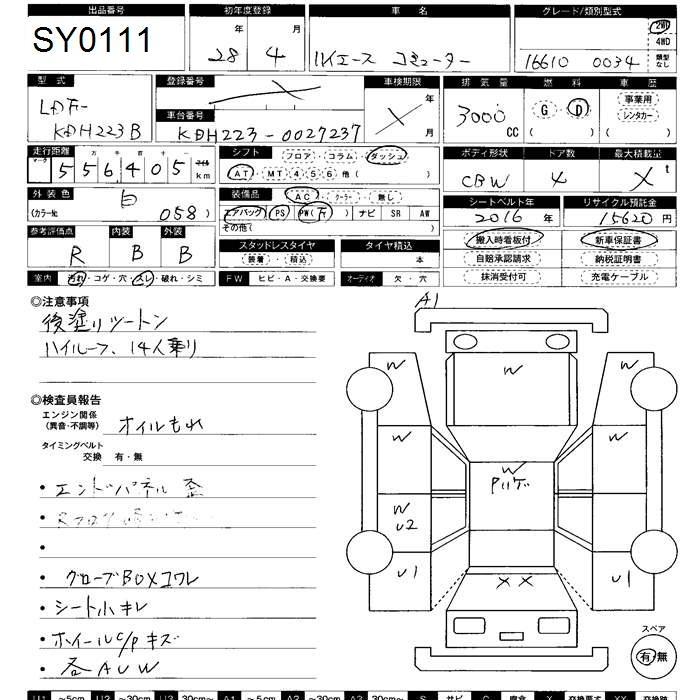 出品番号 初年度登録 車名 グレード/類別型式
SY0111 28年 4月 ハイエース コミューター 16610 0034 2WD 4WD 類型なし
型式 登録番号 車検期限 排気量 燃料 車歴
LDF-KDH223B 車台番号 KDH223-0027237 年 月 3000CC G D ( ) 事業用 レンタカー ( )
走行距離 シフト ボディ形状 ドア数 最大積載量
マーク 十万 万 千 百 十 一 556405 マイル km フロア・コラム・ダッシュ AT・MT 4 5 6 他( ) CBW 4 X t
外装色 装備品 シートベルト年 リサイクル預託金
白 (カラーNo 058) AC・クーラー・無し エアバッグ PS PW ナビ SR AW その他( ) 2016年 15620円
参考評価点 内装 外装 スタッドレスタイヤ タイヤ積込 搬入時看板付 新車保証書
R B B 装着・積込 本 自賠承認請求 納税証明書
室内 汚れ・コゲ・穴・スレ・破れ・シミ FW ヒビ・A・交換要 オーディオ 欠・穴 抹消受付可 充電ケーブル
◎注意事項
後塗りツートン
ハイルーフ、14人乗り
◎検査員報告
エンジン関係 (異音・不調等) オイルもれ
タイミングベルト 交換 有・無
・エンドパネル 歪
・グローブBOXコワレ
・シート小キレ
・ホイールc/pキズ
・各AUW
A1
W W W
W W W
Pハゲ
W U2 W
U1 XX U1
スペア
有・無
U1 ~5cm U2 ~30cm U3 30cm~ A1 ~5cm A2 ~30cm A3 30cm~ S サビ C 腐食 X 交換要す XX 交換跡